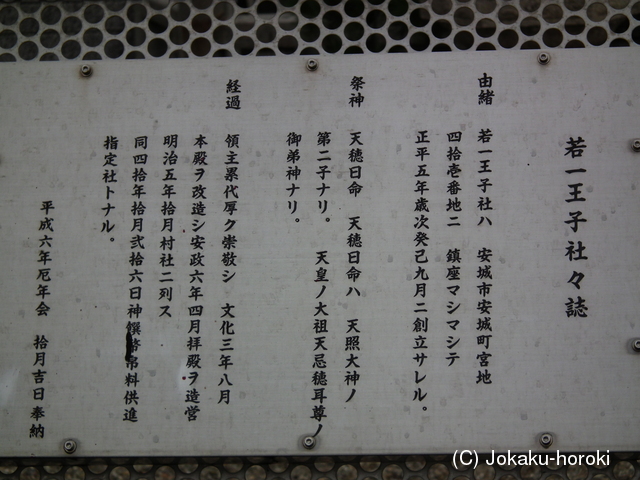 若一王子社々誌
由緒 若一王子社ハ 安城市安城町宮地
四拾壱番地ニ 鎮座マシマシテ
正平五年歳次癸己九月ニ創立サレル。
祭神 天穂日命 天穂日命ハ 天照大神ノ
第二子ナリ。 天皇ノ大祖天忌穂耳尊ノ
御弟神ナリ。
経過 領主累代厚ク崇敬シ 文化三年八月
本殿ヲ改造シ安政六年四月拝殿ヲ造営
明治五年拾月村社ニ列ス
同四拾年拾月弐拾六日神饌幣帛料供進
指定社トナル。
平成六年厄年会 拾月吉日奉納
(C) Jokaku-horoki